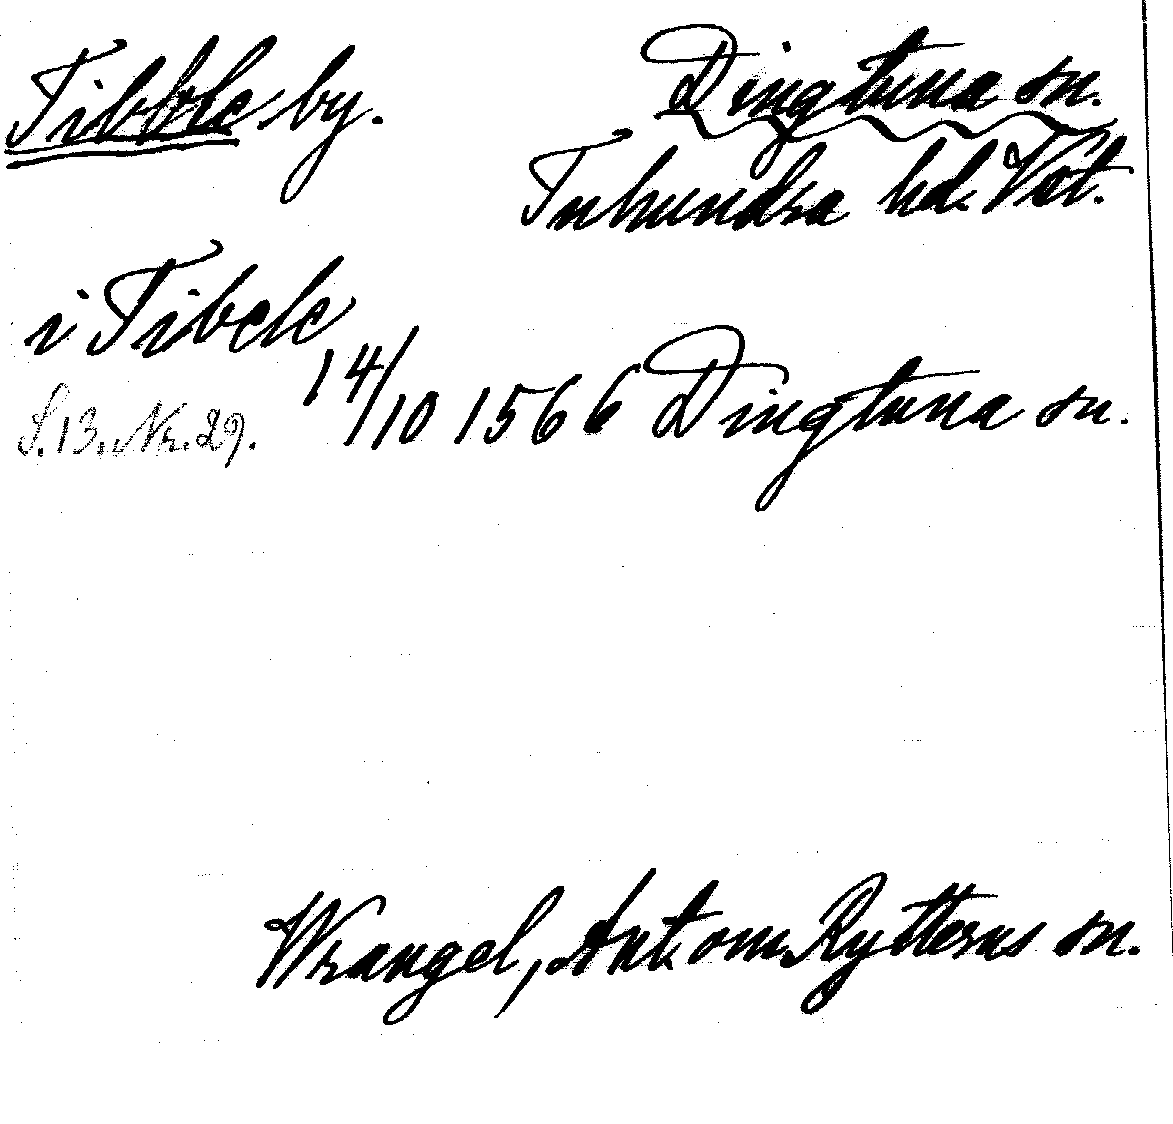 Tibble by. Dingtuna sn.
Tuhundra hd. Vstm.
i Tibele
14/10 1566 Dingtuna sn.
S. 13. Nr. 29.
Wrangel, Ant. om Rytterns sn.